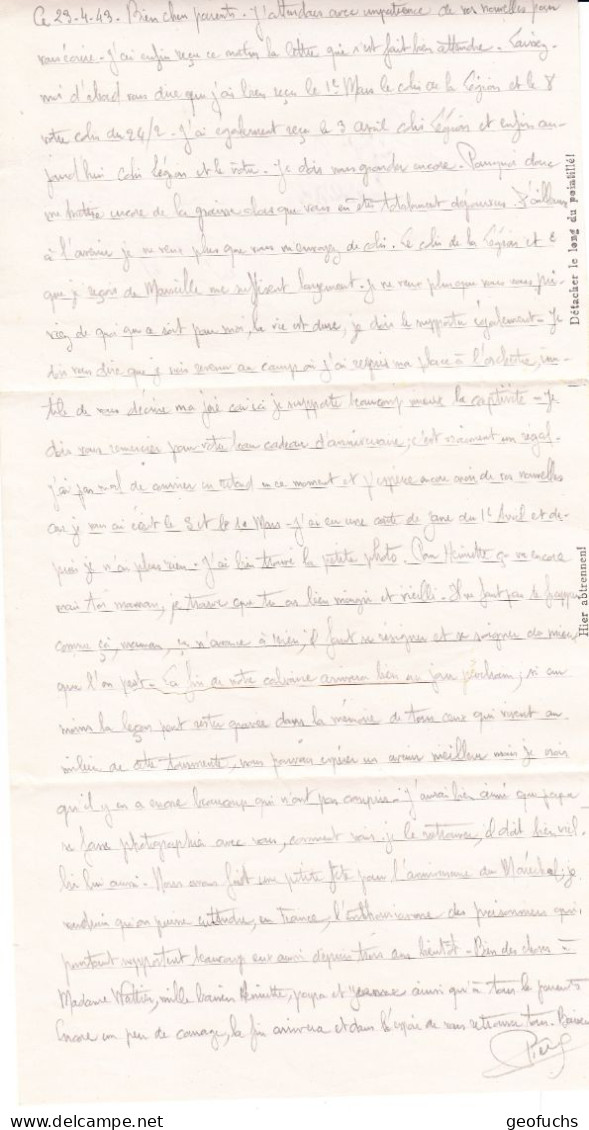 Ce 29-4-43. Bien chers parents. J'attendais avec impatience de vos nouvelles pour
vous écrire. J'ai enfin reçu ce matin la lettre qui s'est fait bien attendre. Laissez
moi d'abord vous dire que j'ai bien reçu le 1er Mars le colis de la Légion et le 8
votre colis du 24/2. J'ai également reçu le 3 avril colis Légion et enfin au-
jourd'hui colis Légion et le vôtre. Je dois vous gronder encore. Pourquoi donc
me mettre encore de la graisse alors que vous en êtes totalement dépourvus. D'ailleurs
à l'avenir je ne veux plus que vous m'envoyez de colis. Le colis de la Légion et
que je reçois de Marseille me suffisent largement. Je ne veux plus que vous vous pri-
viez de quoi que ce soit pour moi, la vie est dure, je dois le supporter également. Je
dois vous dire que je suis revenu au camp où j'ai repris ma place à l'orchestre, inu-
tile de vous décrire ma joie car ici je supporte beaucoup mieux la captivité. Je
dois vous remercier pour votre beau cadeau d'anniversaire, c'est vraiment un régal.
J'ai pas mal de courrier en retard en ce moment et j'espère encore avoir de vos nouvelles
car je vous ai écrit le 3 et le 10 Mars. J'ai eu une carte de Jane du 1er Avril et de-
puis je n'ai plus rien. J'ai bien trouvé la petite photo. Pour Henriette ça va encore
mais toi maman, je trouve que tu as bien maigri et vieilli. Il ne faut pas se frapper
comme ça, maman, ça n'avance à rien, il faut se résigner et se soigner du mieux
que l'on peut. La fin de notre calvaire arrivera bien un jour prochain, si au
moins la leçon peut rester gravée dans la mémoire de tous ceux qui vivent au
milieu de cette tourmente, nous pouvons espérer un avenir meilleur mais je crois
qu'il y en a encore beaucoup qui n'ont pas compris. J'aurais bien aimé que papa
se fasse photographier avec vous, comment vais-je le retrouver, il doit bien vieil-
lir lui aussi. Nous avons fait une petite fête pour l'anniversaire du Maréchal, je
voudrais qu'on puisse entendre, en France, l'enthousiasme des prisonniers qui
pourtant supportent beaucoup eux aussi depuis trois ans bientôt. Bien des choses à
Madame Wattier, mille baisers Henriette, papa et ainsi qu'à tous les parents
Encore un peu de courage, la fin arrivera et dans l'espoir de vous retrouver tous. Baisers
Détacher le long du pointillé!
Hier abtrennen!
geofuchs